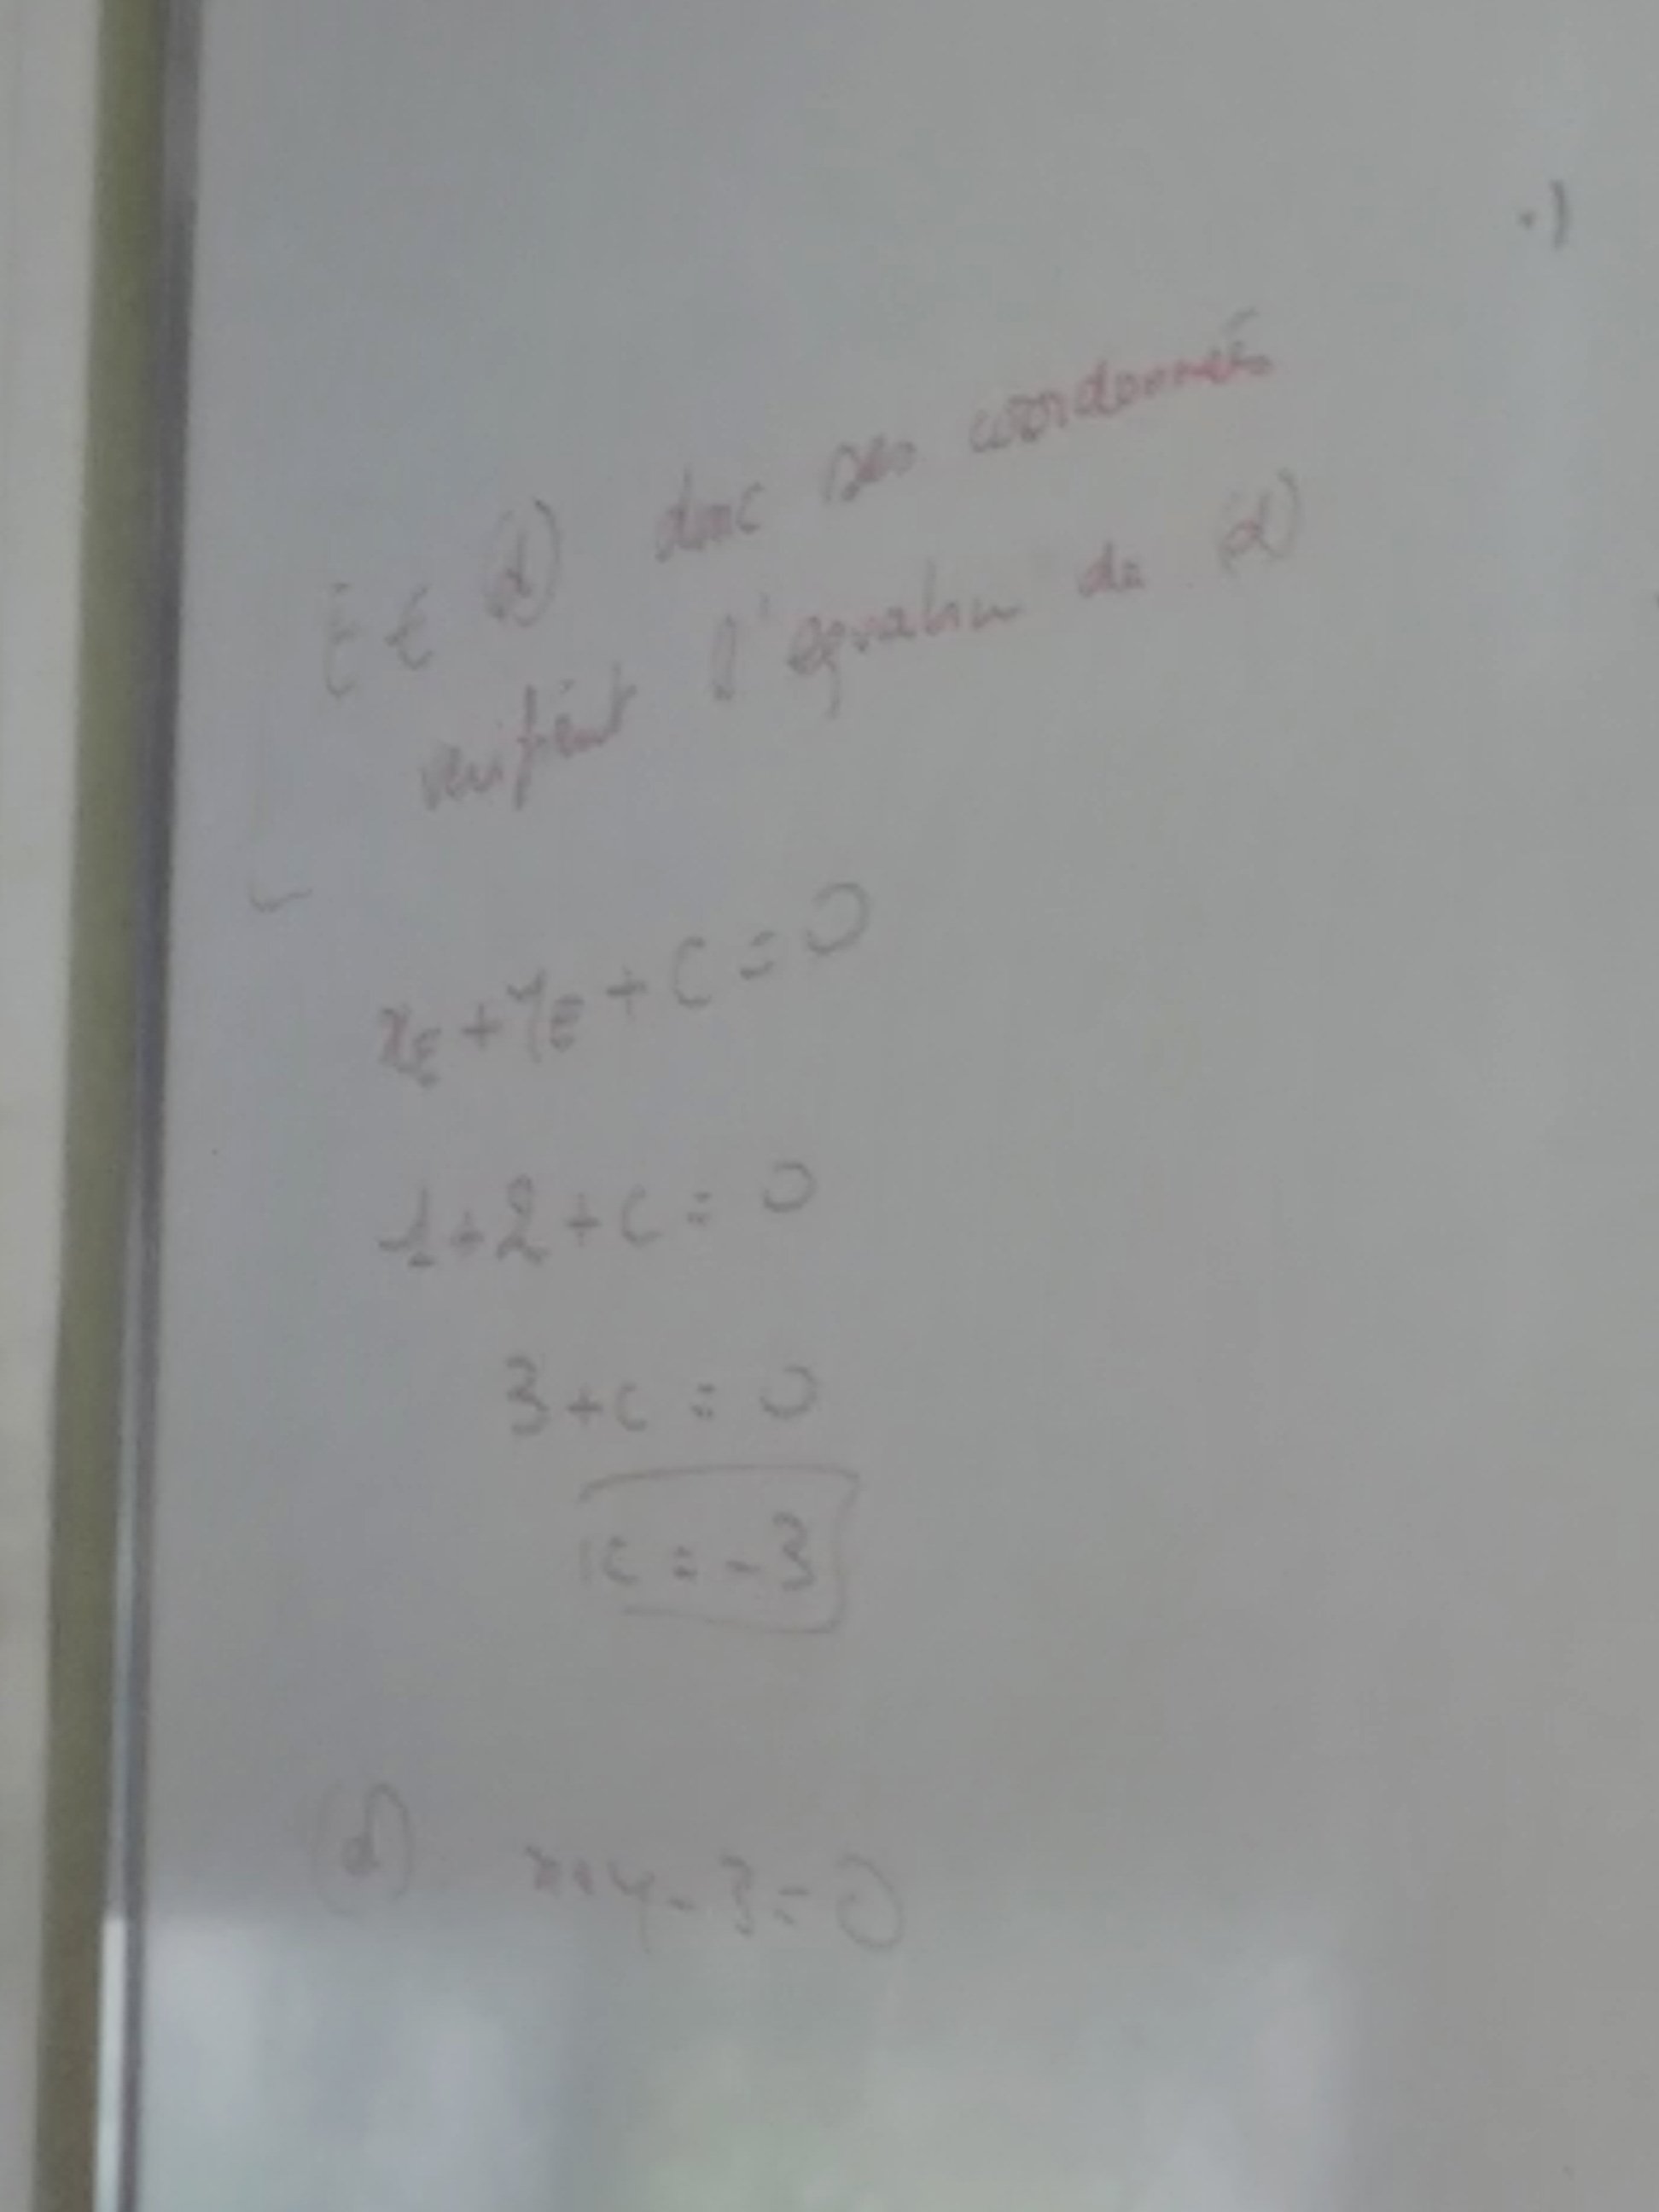 •)
E ∈ (d) donc ses coordonnées
verifient l'equation de (d)
x_E + y_E + C = 0
1 + 2 + C = 0
3 + C = 0
C = -3
(d) x + y - 3 = 0